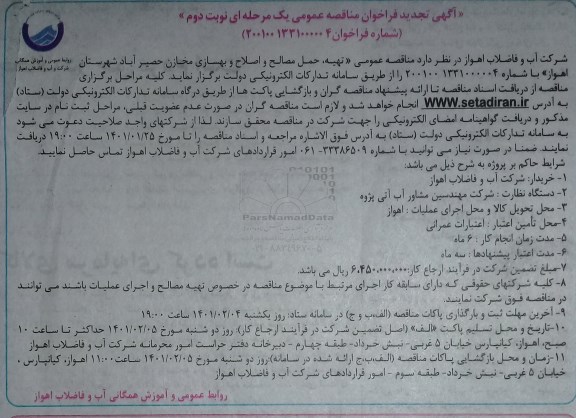 « آگهی تجدید فراخوان مناقصه عمومی یک مرحله ای نوبت دوم »
(شماره فراخوان ۲۰۰۱۰۰۱۳۳۱۰۰۰۰۰۴)
روابط عمومی و آموزش همگانی
شرکت آب و فاضلاب اهواز
شرکت آب و فاضلاب اهواز در نظر دارد مناقصه عمومی « تهیه، حمل مصالح و اصلاح و بهسازی مخازن حصیر آباد شهرستان
اهواز» با شماره ۲۰۰۱۰۰۱۳۳۱۰۰۰۰۰۴ را از طریق سامانه تدارکات الکترونیکی دولت برگزار نماید. کلیه مراحل برگزاری
مناقصه از دریافت اسناد مناقصه تا ارائه پیشنهاد مناقصه گران و بازگشایی پاکت ها از طریق درگاه سامانه تدارکات الکترونیکی دولت (ستاد)
به آدرس www.setadiran.ir انجام خواهد شد و لازم است مناقصه گران در صورت عدم عضویت قبلی، مراحل ثبت نام در سایت
مذکور و دریافت گواهینامه امضای الکترونیکی را جهت شرکت در مناقصه محقق سازند. لذا از شرکتهای واجد صلاحیت دعوت می شود
به سامانه تدارکات الکترونیکی دولت (ستاد) به آدرس فوق الاشاره مراجعه و اسناد مناقصه را تا مورخ ۱۴۰۱/۰۱/۲۵ ساعت ۱۹:۰۰ دریافت
نمایند. ضمنا در صورت نیاز می توانید با شماره ۳۳۳۸۶۵۰۹- ۰۶۱ امور قراردادهای شرکت آب و فاضلاب اهواز تماس حاصل نمایید.
شرایط حاکم بر پروژه به شرح ذیل می باشد.
۱- خریدار: شرکت آب و فاضلاب اهواز
۲- دستگاه نظارت : شرکت مهندسین مشاور آب آتی پژوه
۳- محل تحویل کالا و محل اجرای عملیات : اهواز
۴-محل تأمین اعتبار : اعتبارات عمرانی
۵- مدت زمان انجام کار : ۶ ماه
۶- مدت اعتبار پیشنهادها : سه ماه
۷-مبلغ تضمین شرکت در فرآیند ارجاع کار: ۶،۴۵۰،۰۰۰،۰۰۰ ریال می باشد.
۸- کلیه شرکتهای حقوقی که دارای سابقه کار اجرای مرتبط با موضوع مناقصه در خصوص تهیه مصالح و اجرای عملیات باشند می توانند
در مناقصه فوق شرکت نمایند.
۹- آخرین مهلت ثبت و بارگذاری پاکات مناقصه (الف،ب و ج) در سامانه ستاد: روز یکشنبه ۱۴۰۱/۰۲/۰۴ ساعت ۱۹:۰۰
۱۰-تاریخ و محل تسلیم پاکت «الف» (اصل تضمین شرکت در فرآیند ارجاع کار): روز دو شنبه مورخ ۱۴۰۱/۰۲/۰۵ حداکثر تا ساعت ۱۰
صبح، اهواز، کیانپارس خیابان ۵ غربی- نبش خرداد- طبقه چهارم - دبیرخانه دفتر حراست امور محرمانه شرکت آب و فاضلاب اهواز
۱۱-زمان و محل بازگشایی پاکات مناقصه (الف،ب،ج ارائه شده در سامانه):روز دو شنبه مورخ ۱۴۰۱/۰۲/۰۵ ساعت۱۱:۰۰ اهواز، کیانپارس ،
خیابان ۵ غربی- نبش خرداد- طبقه سوم - امور قراردادهای شرکت آب و فاضلاب اهواز
روابط عمومی و آموزش همگانی آب و فاضلاب اهواز
ParsNamadData